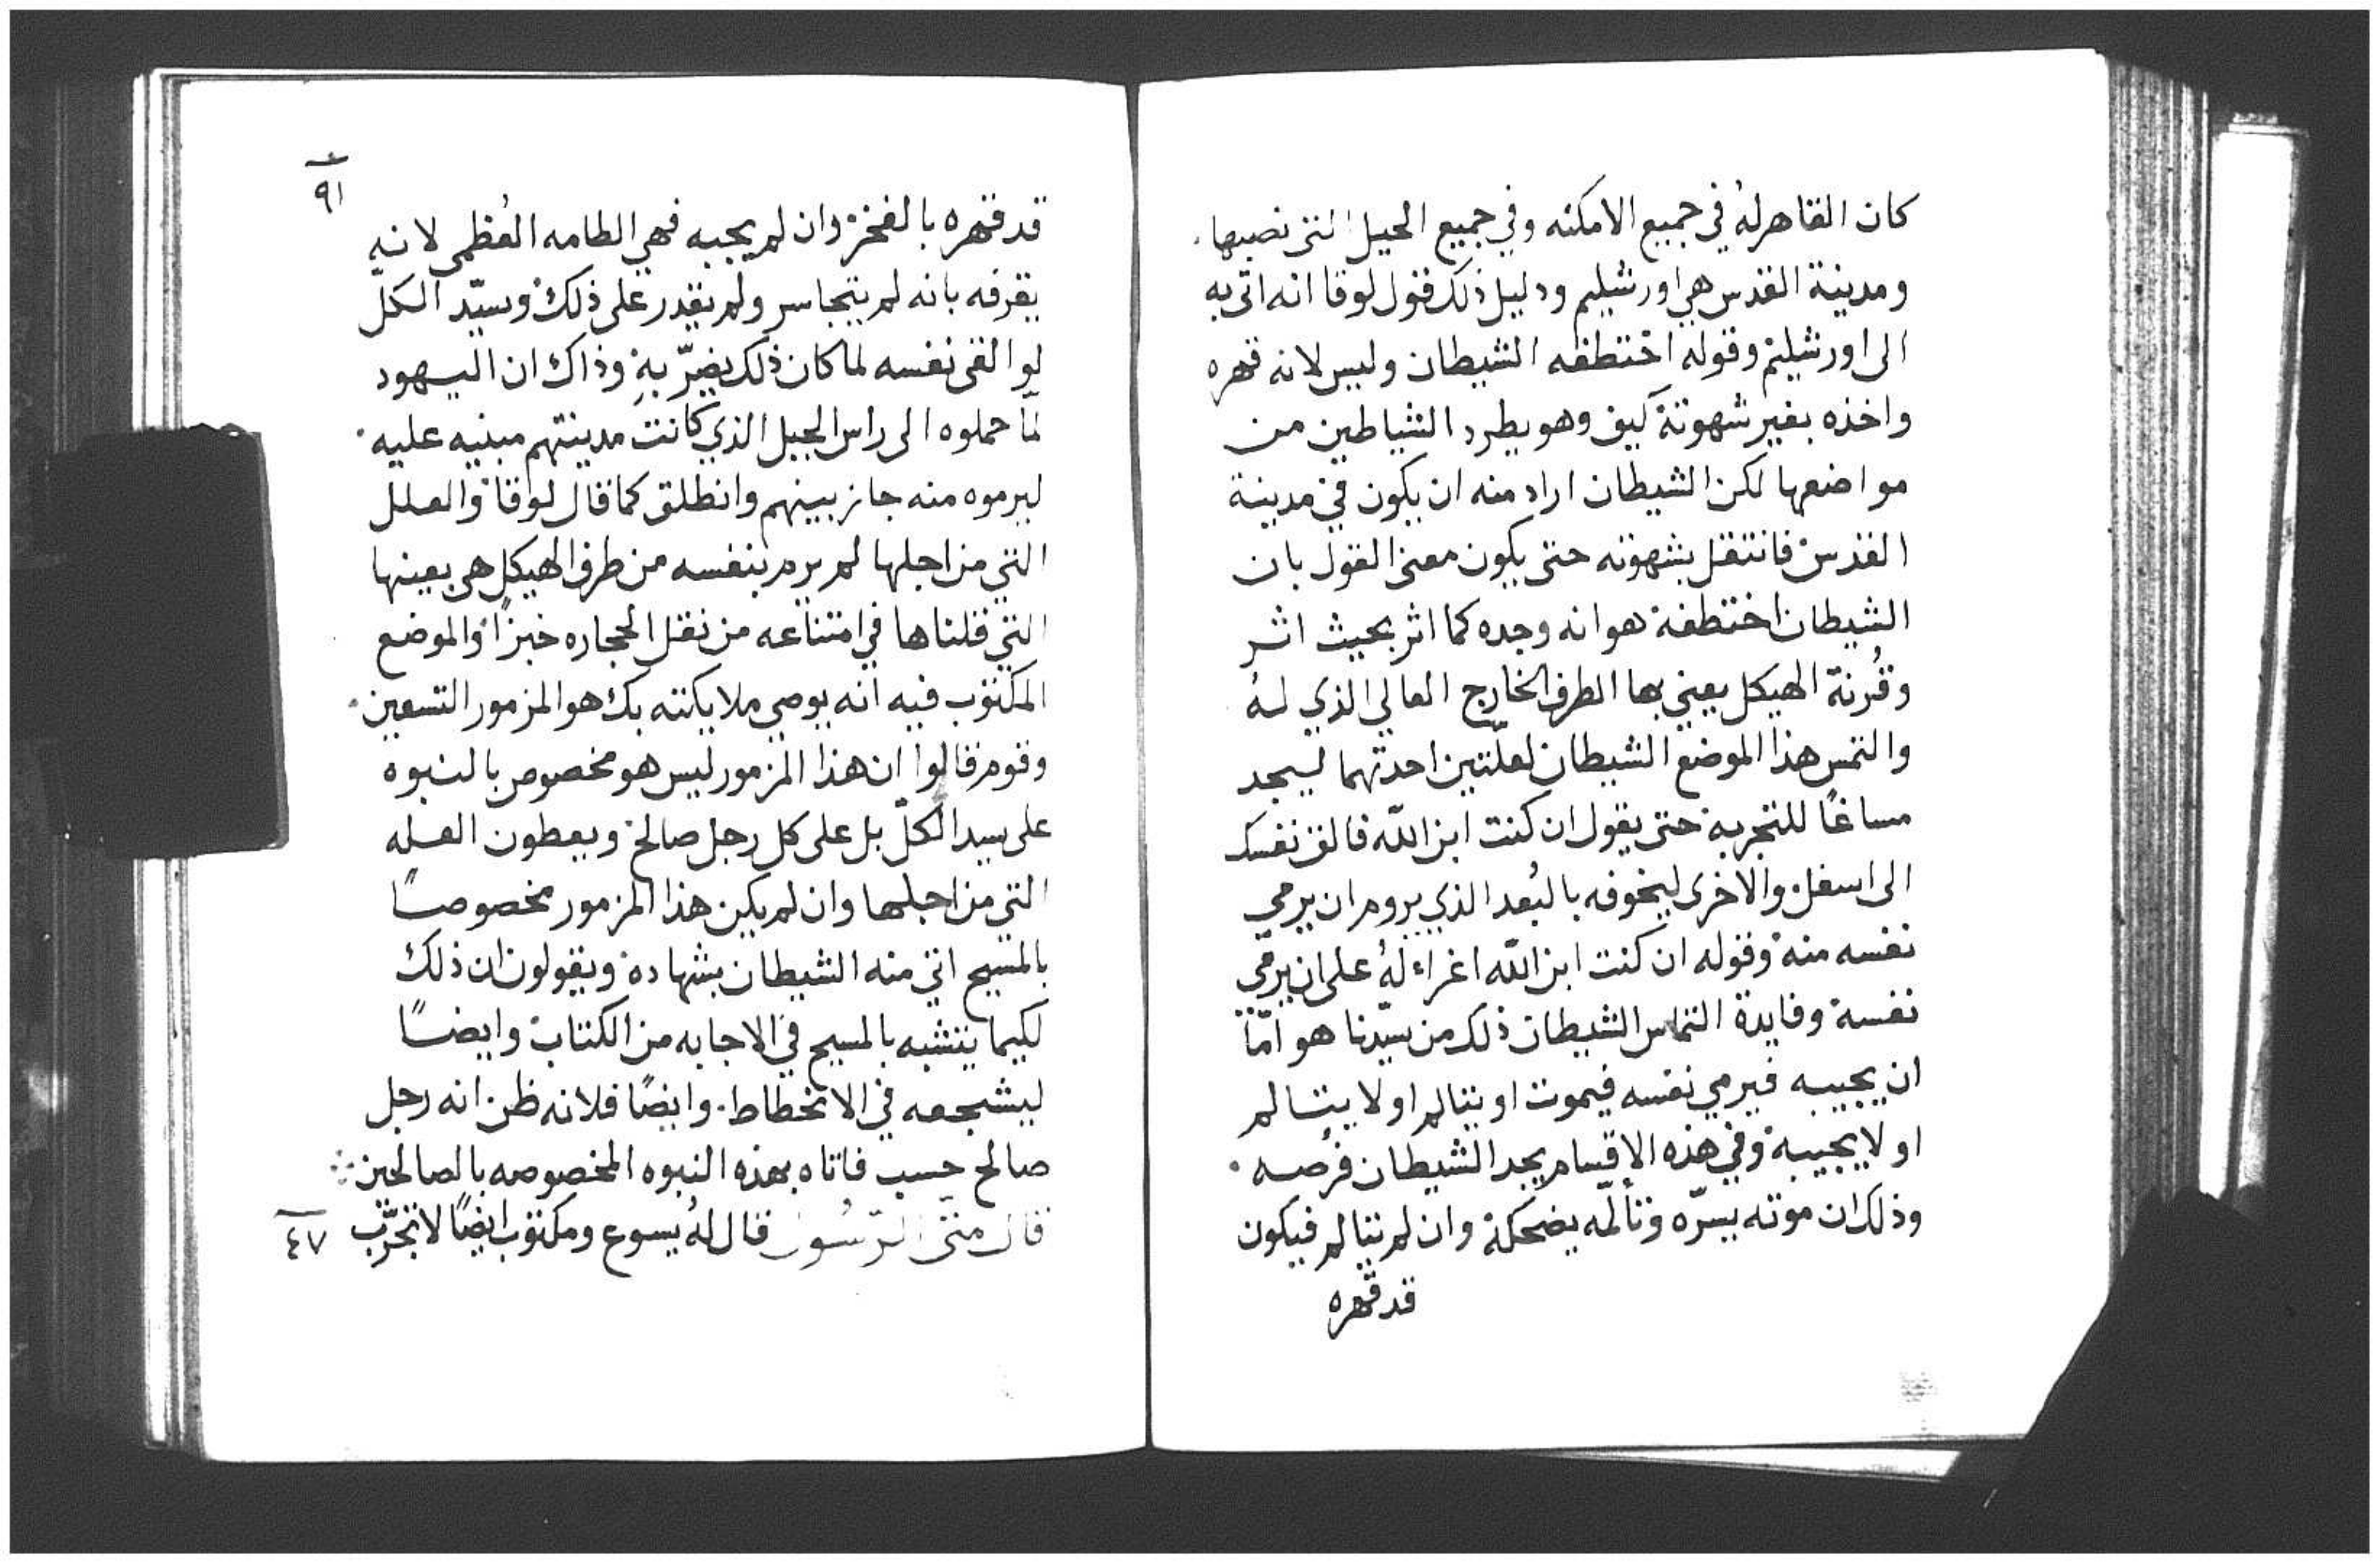 كان القاهر لهُ في جميع الامكنه وفي جميع الحيل التي نصبها.
ومدينة القدس هي اورشليم ودليل ذلك قول لوقا انه اتى به
الى اورشليم وقوله اختطفه الشيطان وليس لانه قهره
واخذه بغير شهوته كيف وهو يطرد الشياطين من
مواضعها لكن الشيطان اراد منه ان يكون في مدينة
القدس فانتقل بشهوته حتى يكون معنى القول بان
الشيطان اختطفه هو انه وجده كما اثر بحيث اثر
وقُرنة الهيكل يعني بها الطرف الخارج العالي الذي لهُ
والتمس هذا الموضع الشيطان لعلّتين احدتهما ليجد
مساغًا للتجربه حتى يقول ان كنت ابن اللّه فالق نفسك
الى اسفل والاخرى ليخوفه بالبُعد الذي يروم ان يرمي
نفسه منه وقوله ان كنت ابن اللّه اغراء لهُ على ان يرمي
نفسه وفايدة التماس الشيطان ذلك من سيّدنا هو امّا
ان يجيبه فيرمي نفسه فيموت او يتالم او لا يتالم
او لا يجيبه وفي هذه الاقسام يجد الشيطان فرصه.
وذلك ان موته يسرّه وتألمّه يضحكه وان لم يتالم فيكون
قد قهره
٩١
قد قهره بالفخر وان لم يجبه فهي الطامه العُظمى لانه
يقرفه بانه لم يتجاسر ولم يقدر على ذلك وسيّد الكلّ
لو القى نفسه لما كان ذلك يضرّ بهِ وذاك ان اليهود
لمّا حملوه الى راس الجبل الذي كانت مدينتهم مبنيه عليه.
ليرموه منه جاز بينهم وانطلق كما قال لوقا والعلل
التي من اجلها لم يرم بنفسه من طرف الهيكل هي بعينها
التي قلناها في امتناعه من نقل الحجاره خبزًا والموضع
المكتوب فيه انه يوصي ملايكته بك هو المزمور التسعين.
وقوم قالوا ان هذا المزمور ليس هو مخصوص بالنبوه
على سيد الكلّ بل على كل رجل صالح ويعطون العله
التي من اجلها وان لم يكن هذا المزمور مخصوصًا
بالمسيح اتى منه الشيطان بشهاده ويقولون ان ذلك
لكيما يتشبه بالمسيح في الاجابه من الكتاب وايضًا
ليشجعه في الانحطاط. وايضًا فلانه ظن انه رجل
صالح حسب فاتاه بهذه النبوه المخصوصه بالصالحين
قال متى الرسُول قال لهُ يسوع ومكتوب ايضًا لا تجرّب
٤٧